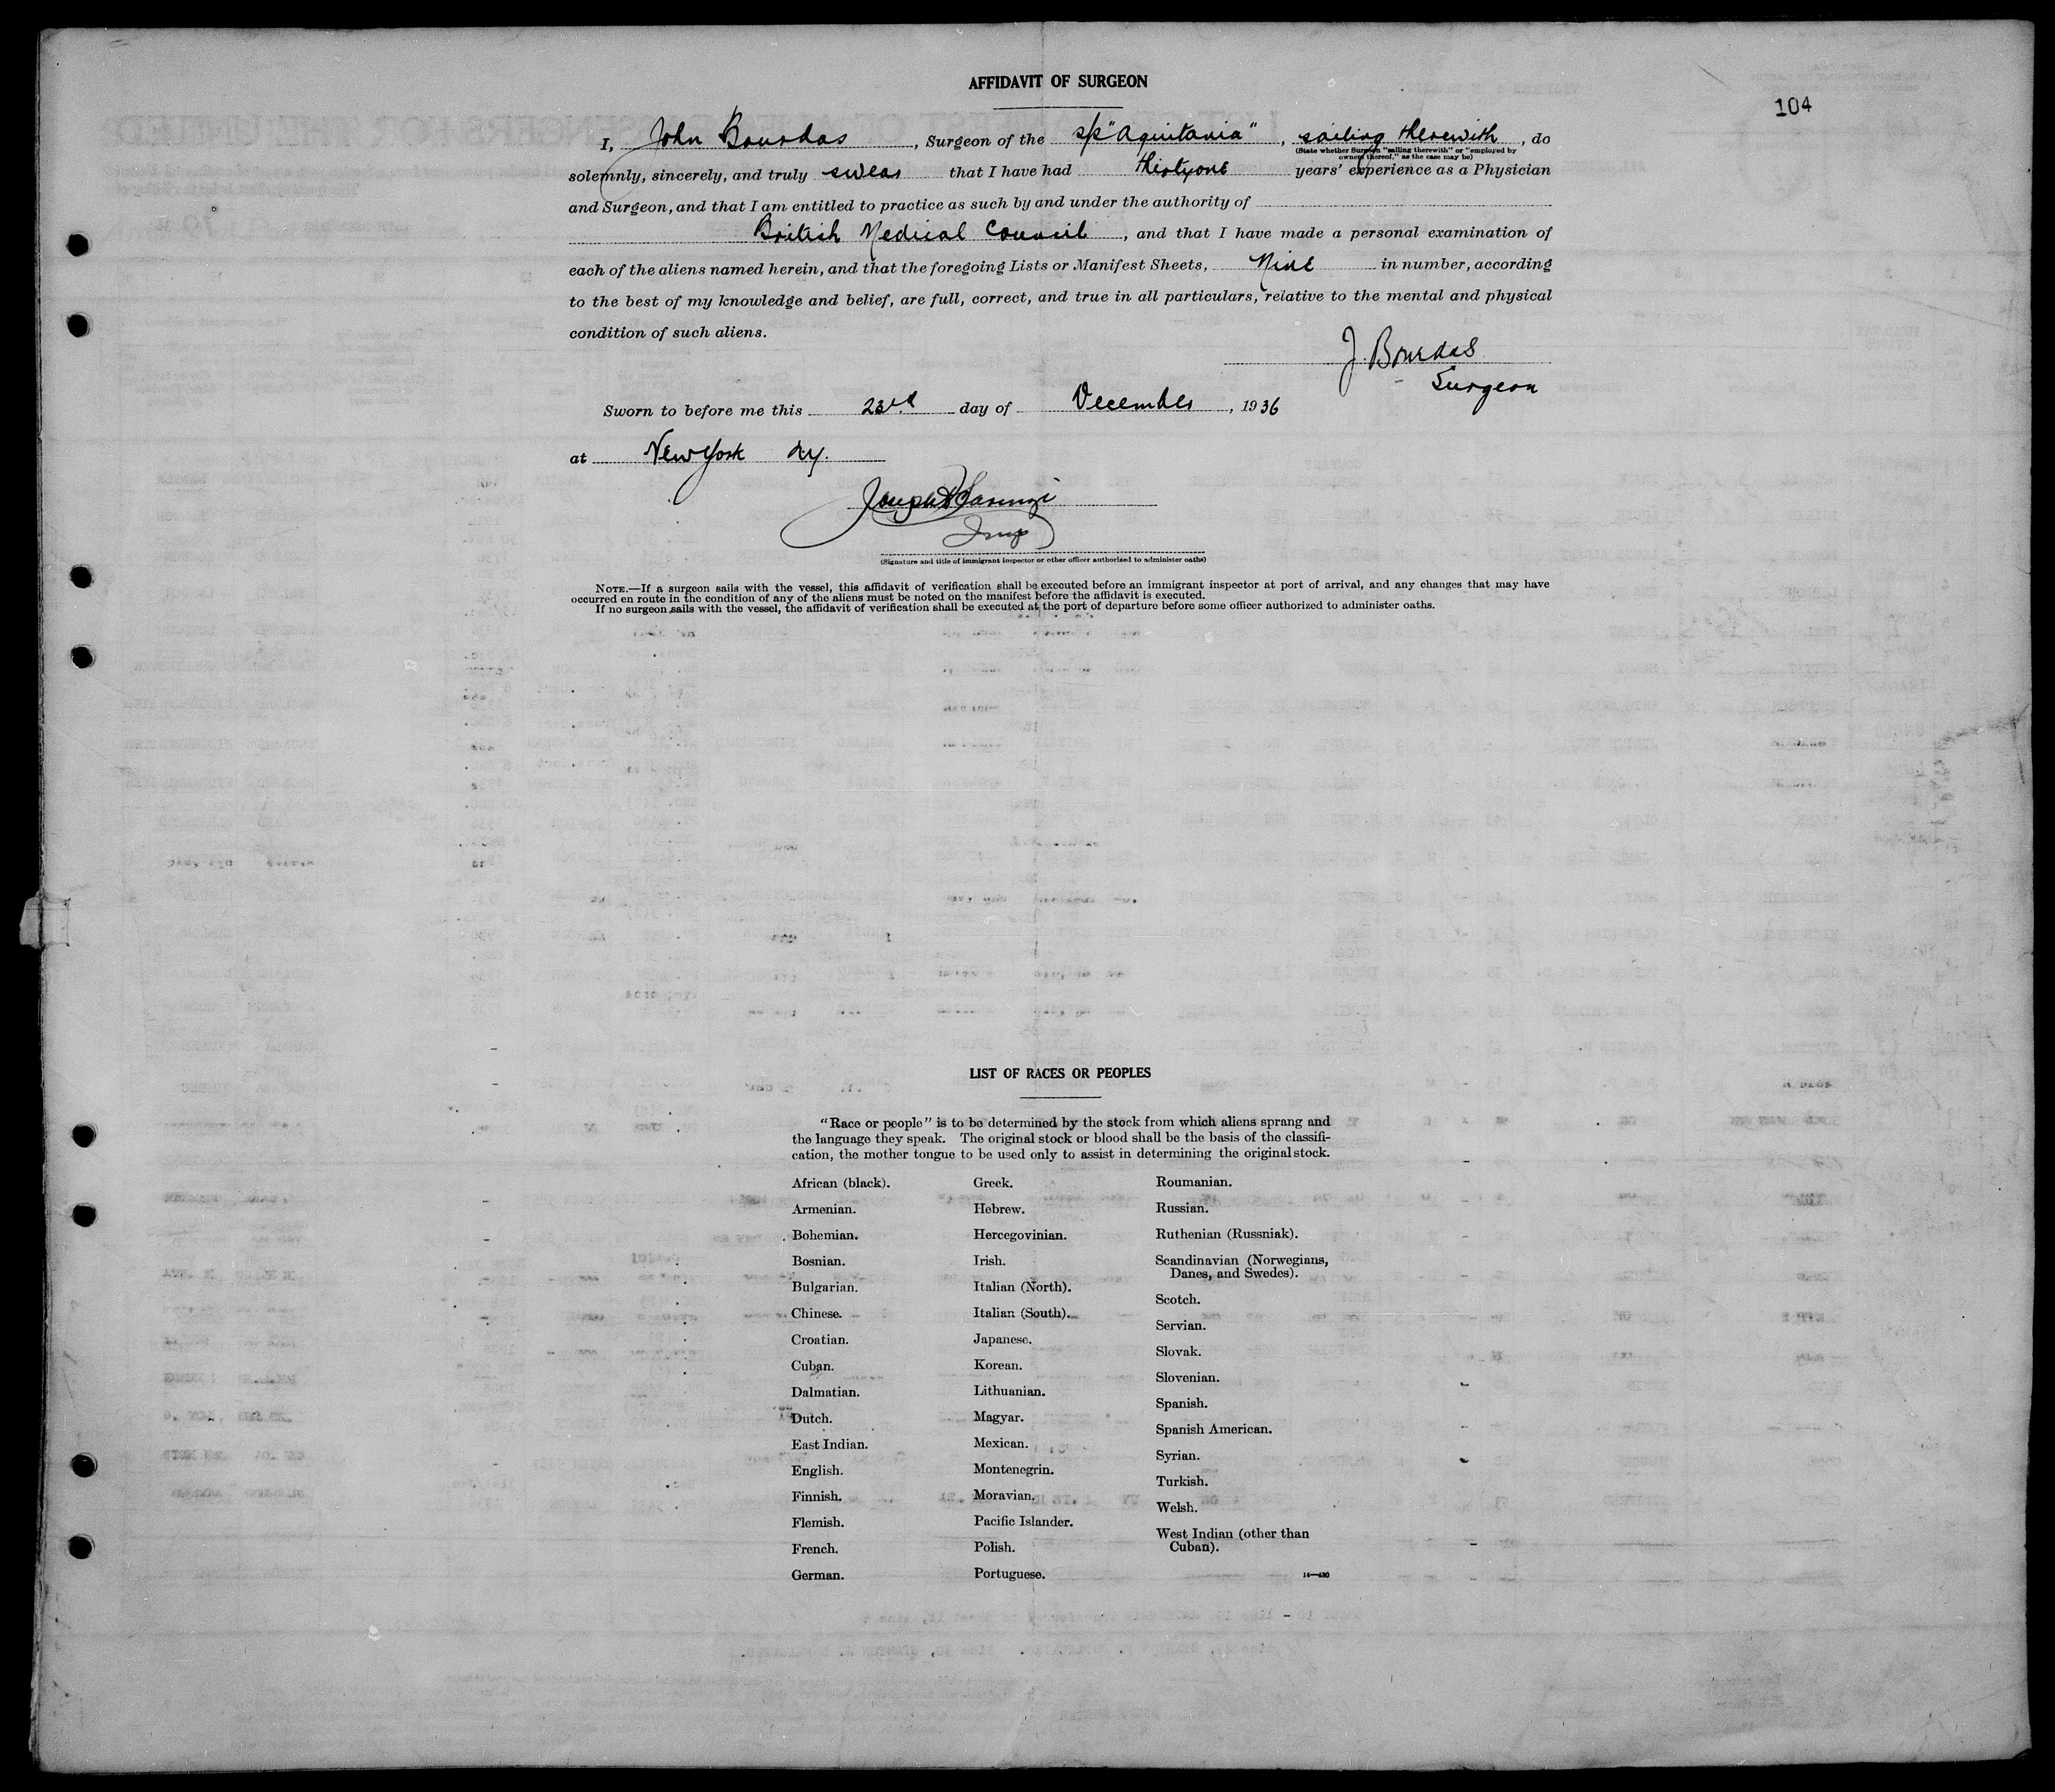 AFFIDAVIT OF SURGEON
104
I, John Bourdas, Surgeon of the s/s "Aquitania", sailing therewith, do
(State whether Surgeon "sailing therewith" or "employed by
owners thereof," as the case may be)
solemnly, sincerely, and truly swear that I have had thirtyone years' experience as a Physician
and Surgeon, and that I am entitled to practice as such by and under the authority of
British Medical Council, and that I have made a personal examination of
each of the aliens named herein, and that the foregoing Lists or Manifest Sheets, Nine in number, according
to the best of my knowledge and belief, are full, correct, and true in all particulars, relative to the mental and physical
condition of such aliens.
J. Bourdas
Surgeon
Sworn to before me this 23rd day of December, 1936
at New York NY.
Joseph
Insp
(Signature and title of immigrant inspector or other officer authorized to administer oaths)
NOTE.—If a surgeon sails with the vessel, this affidavit of verification shall be executed before an immigrant inspector at port of arrival, and any changes that may have
occurred en route in the condition of any of the aliens must be noted on the manifest before the affidavit is executed.
If no surgeon sails with the vessel, the affidavit of verification shall be executed at the port of departure before some officer authorized to administer oaths.
LIST OF RACES OR PEOPLES
"Race or people" is to be determined by the stock from which aliens sprang and
the language they speak. The original stock or blood shall be the basis of the classifi-
cation, the mother tongue to be used only to assist in determining the original stock.
African (black).
Armenian.
Bohemian.
Bosnian.
Bulgarian.
Chinese.
Croatian.
Cuban.
Dalmatian.
Dutch.
East Indian.
English.
Finnish.
Flemish.
French.
German.
Greek.
Hebrew.
Hercegovinian.
Irish.
Italian (North).
Italian (South).
Japanese.
Korean.
Lithuanian.
Magyar.
Mexican.
Montenegrin.
Moravian.
Pacific Islander.
Polish.
Portuguese.
Roumanian.
Russian.
Ruthenian (Russniak).
Scandinavian (Norwegians,
Danes, and Swedes).
Scotch.
Servian.
Slovak.
Slovenian.
Spanish.
Spanish American.
Syrian.
Turkish.
Welsh.
West Indian (other than
Cuban).
14—430